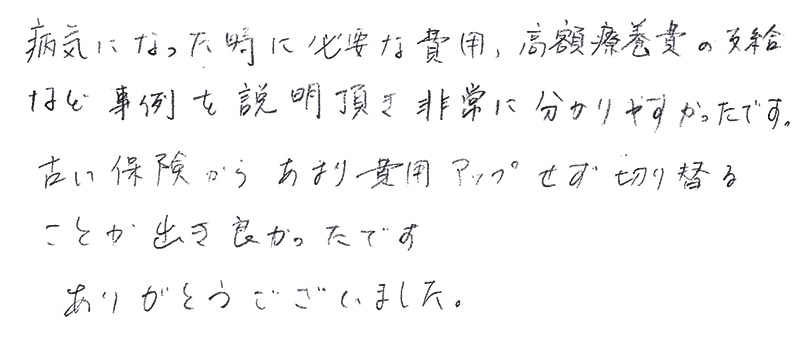 病気になった時に必要な費用、高額療養費の支給
など事例を説明頂き非常に分かりやすかったです。
古い保険からあまり費用アップせず切り替る
ことが出き良かったです
ありがとうございました。